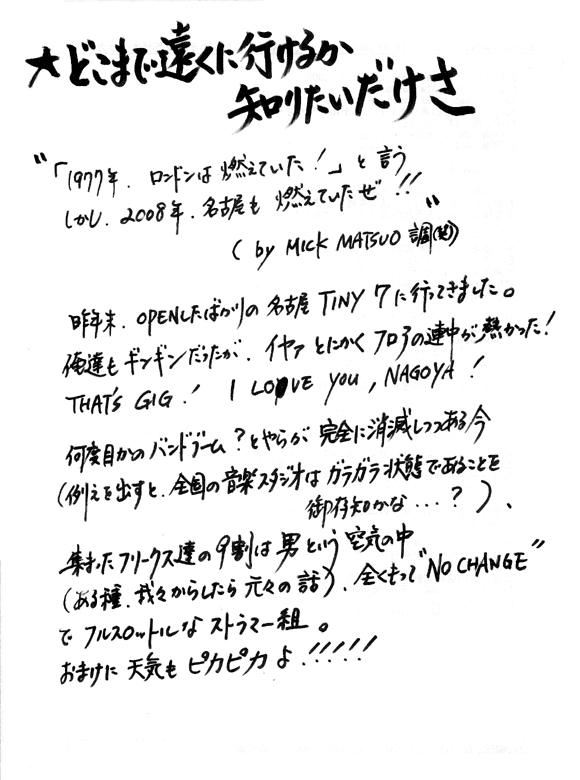 ★どこまで遠くに行けるか
知りたいだけさ
"「1977年.ロンドンは燃えていた!」と言う
しかし.2008年.名古屋も燃えていたぜ!!"
(by MICK MATSUO 調(笑))
昨年末.OPENしたばかりの名古屋 TINY 7に行ってきました。
俺達もギンギンだったが、イヤァ とにかくフロアの連中が熱かった!
THAT'S GIG! I LOVE YOU, NAGOYA!
何度目かのバンドブーム?とやらが完全に消滅しつつある今
(例えを出すと、全国の音楽スタジオはガラガラ状態であることを
御存知かな...?)、
集まったフリークス達の9割は男という空気の中
(ある種、我々からしたら元々の話)、全くもって"NO CHANGE"
でフルスロットルなストラマー組。
おまけに天気もピカピカよ!!!!!